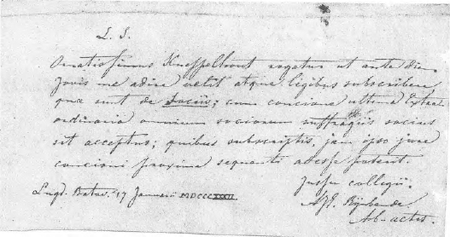 L. S.
Ornatissimus Kneppelhout rogatur ut ante diem
Jovis me adire velit atque legibus subscribere
quae sunt de sociis; cum conciona ultima Extra
ordinaria omnium sociorum suffragiis socius
sit acceptus; quibus subscriptis, jam ipso jure
concioni proxima sequenti adesse poterit.
Jussu collegii.
Lugd. Batav. 17 Januarii
Ab-actis.